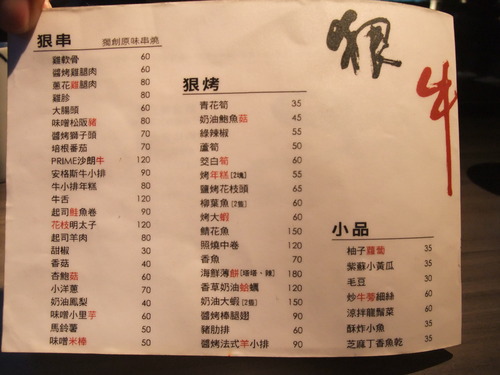 狠牛
狠串 獨創原味串燒
雞軟骨 60
醬烤雞腿肉 60
蔥花雞腿肉 80
雞胗 60
大腸頭 60
味噌松阪豬 80
醬烤獅子頭 70
培根番茄 70
PRIME沙朗牛 120
安格斯牛小排 90
牛小排年糕 80
牛舌 120
起司鮭魚卷 90
花枝明太子 70
起司羊肉 80
甜椒 30
香菇 40
杏鮑菇 60
小洋蔥 50
奶油鳳梨 40
味噌小里芋 60
馬鈴薯 50
味噌米棒 50
狠烤
青花筍 35
奶油鮑魚菇 45
綠辣椒 55
蘆筍 50
茭白筍 60
烤年糕[2塊] 55
鹽烤花枝頭 65
柳葉魚[2隻] 60
烤大蝦 60
鯖花魚 50
照燒中卷 120
香魚 70
海鮮薄餅[塔塔、辣] 180
香草奶油蛤蠣 120
奶油大蝦[2隻] 150
醬烤棒腿翅 90
豬肋排 60
醬烤法式羊小排 90
小品
柚子蘿蔔 35
紫蘇小黃瓜 35
毛豆 30
炒牛蒡細絲 60
涼拌龍鬚菜 60
酥炸小魚 35
芝麻丁香魚乾 35